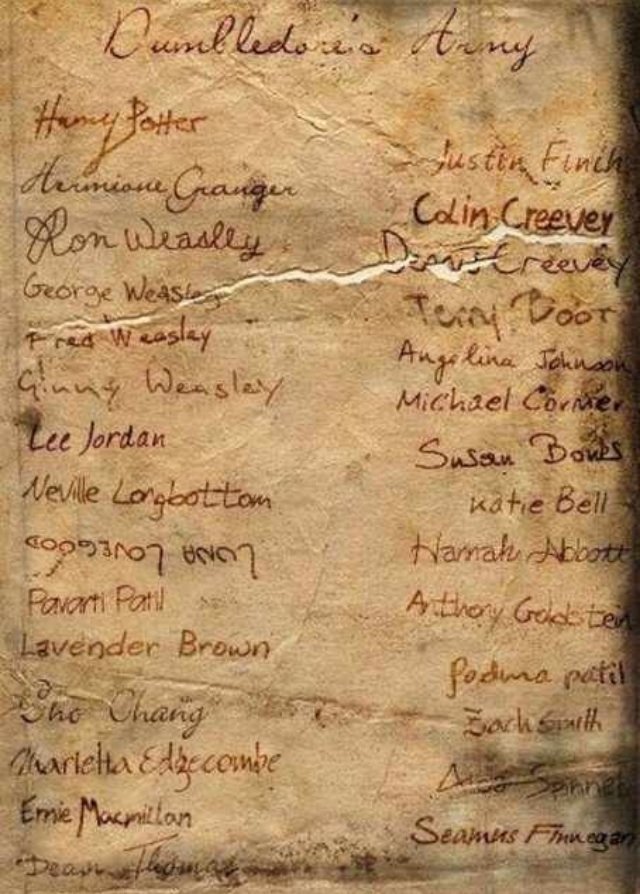 Dumbledore's Army
Harry Potter
Hermione Granger
Ron Weasley
George Weasley
Fred Weasley
Ginny Weasley
Lee Jordan
Neville Longbottom
LUNA LOVEGOOD
Pavarti Patil
Lavender Brown
Cho Chang
Marietta Edgecombe
Ernie Macmillan
Dean Thomas
Justin Finch
Colin Creevey
Dennis Creevey
Terry Boot
Angelina Johnson
Michael Corner
Susan Bones
Katie Bell
Hannah Abbott
Anthony Goldstein
Padma patil
Zach Smith
Spinnet
Seamus Finnegan